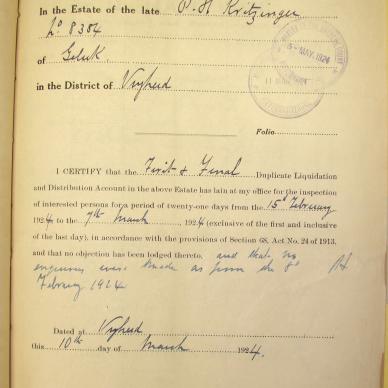 In the Estate of the late P. H. Kritzinger
No 8384
of Geluk
in the District of Vryheid
5-MAY.1924
Folio
I CERTIFY that the First & Final Duplicate Liquidation
and Distribution Account in the above Estate has lain at my office for the inspection
of interested persons for a period of twenty-one days from the 15th February
1924 to the 7th March, 1924 (exclusive of the first and inclusive
of the last day), in accordance with the provisions of Section 68, Act No. 24 of 1913,
and that no objection has been lodged thereto. and that no
enquiries were made as from the 8th
February 1924
Dated at Vryheid
this 10th day of March 1924.